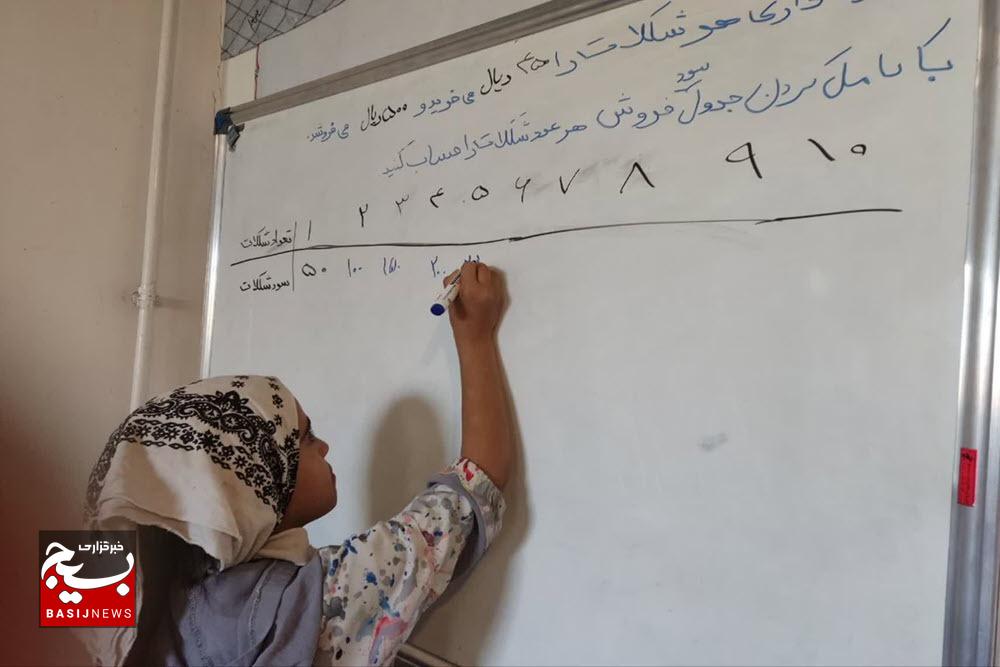 هر شکلات را ۴۵۰ ریال می خرید و ۵۰۰ ریال می فروشد.
سود
با کامل کردن جدول فروش هر عدد شکلات را حساب کنید
تعداد شکلات ۱ ۲ ۳ ۴ ۵ ۶ ۷ ۸ ۹ ۱۰
سود شکلات ۵۰ ۱۰۰ ۱۵۰ ۲۰۰
خبرگزاری
بسیج
BASIJNEWS